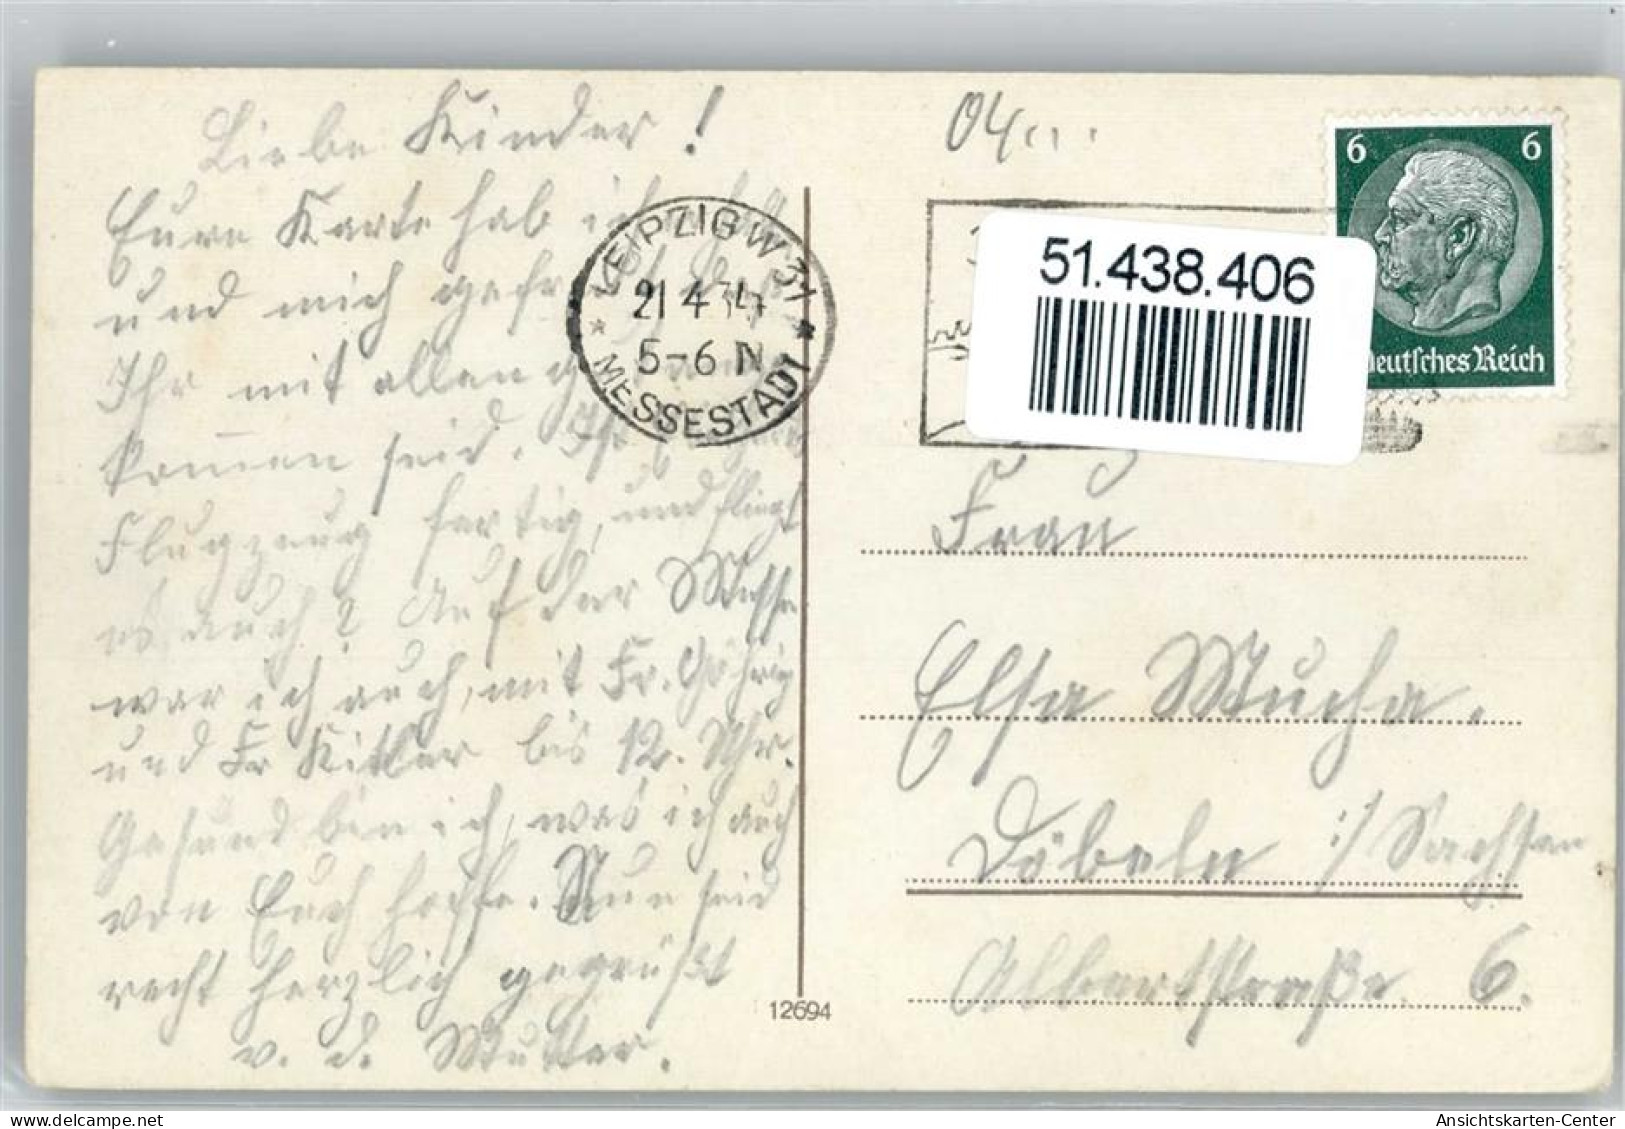 Liebe Kinder!
Eure Karte hab ich
und mich gefreut daß
Ihr mit allen
kommen seid. Ihr
Flugzeug fertig, und fliegt
es auch? Auf der Messe
war ich auch, mit Fr. Göhrig
und Fr Kittler bis 12. Uhr.
Gesund bin ich, was ich auch
von Euch hoffe. Nun seid
recht herzlich gegrüßt
v. d. Mutter.
LEIPZIG W 31
21 4 34
5-6 N
MESSESTADT
12694
04...
6 6
Deutsches Reich
51.438.406
Frau
Elsa Mucha.
Döbeln i/Sachsen
Albertstraße. 6.
Ansichtskarten-Center